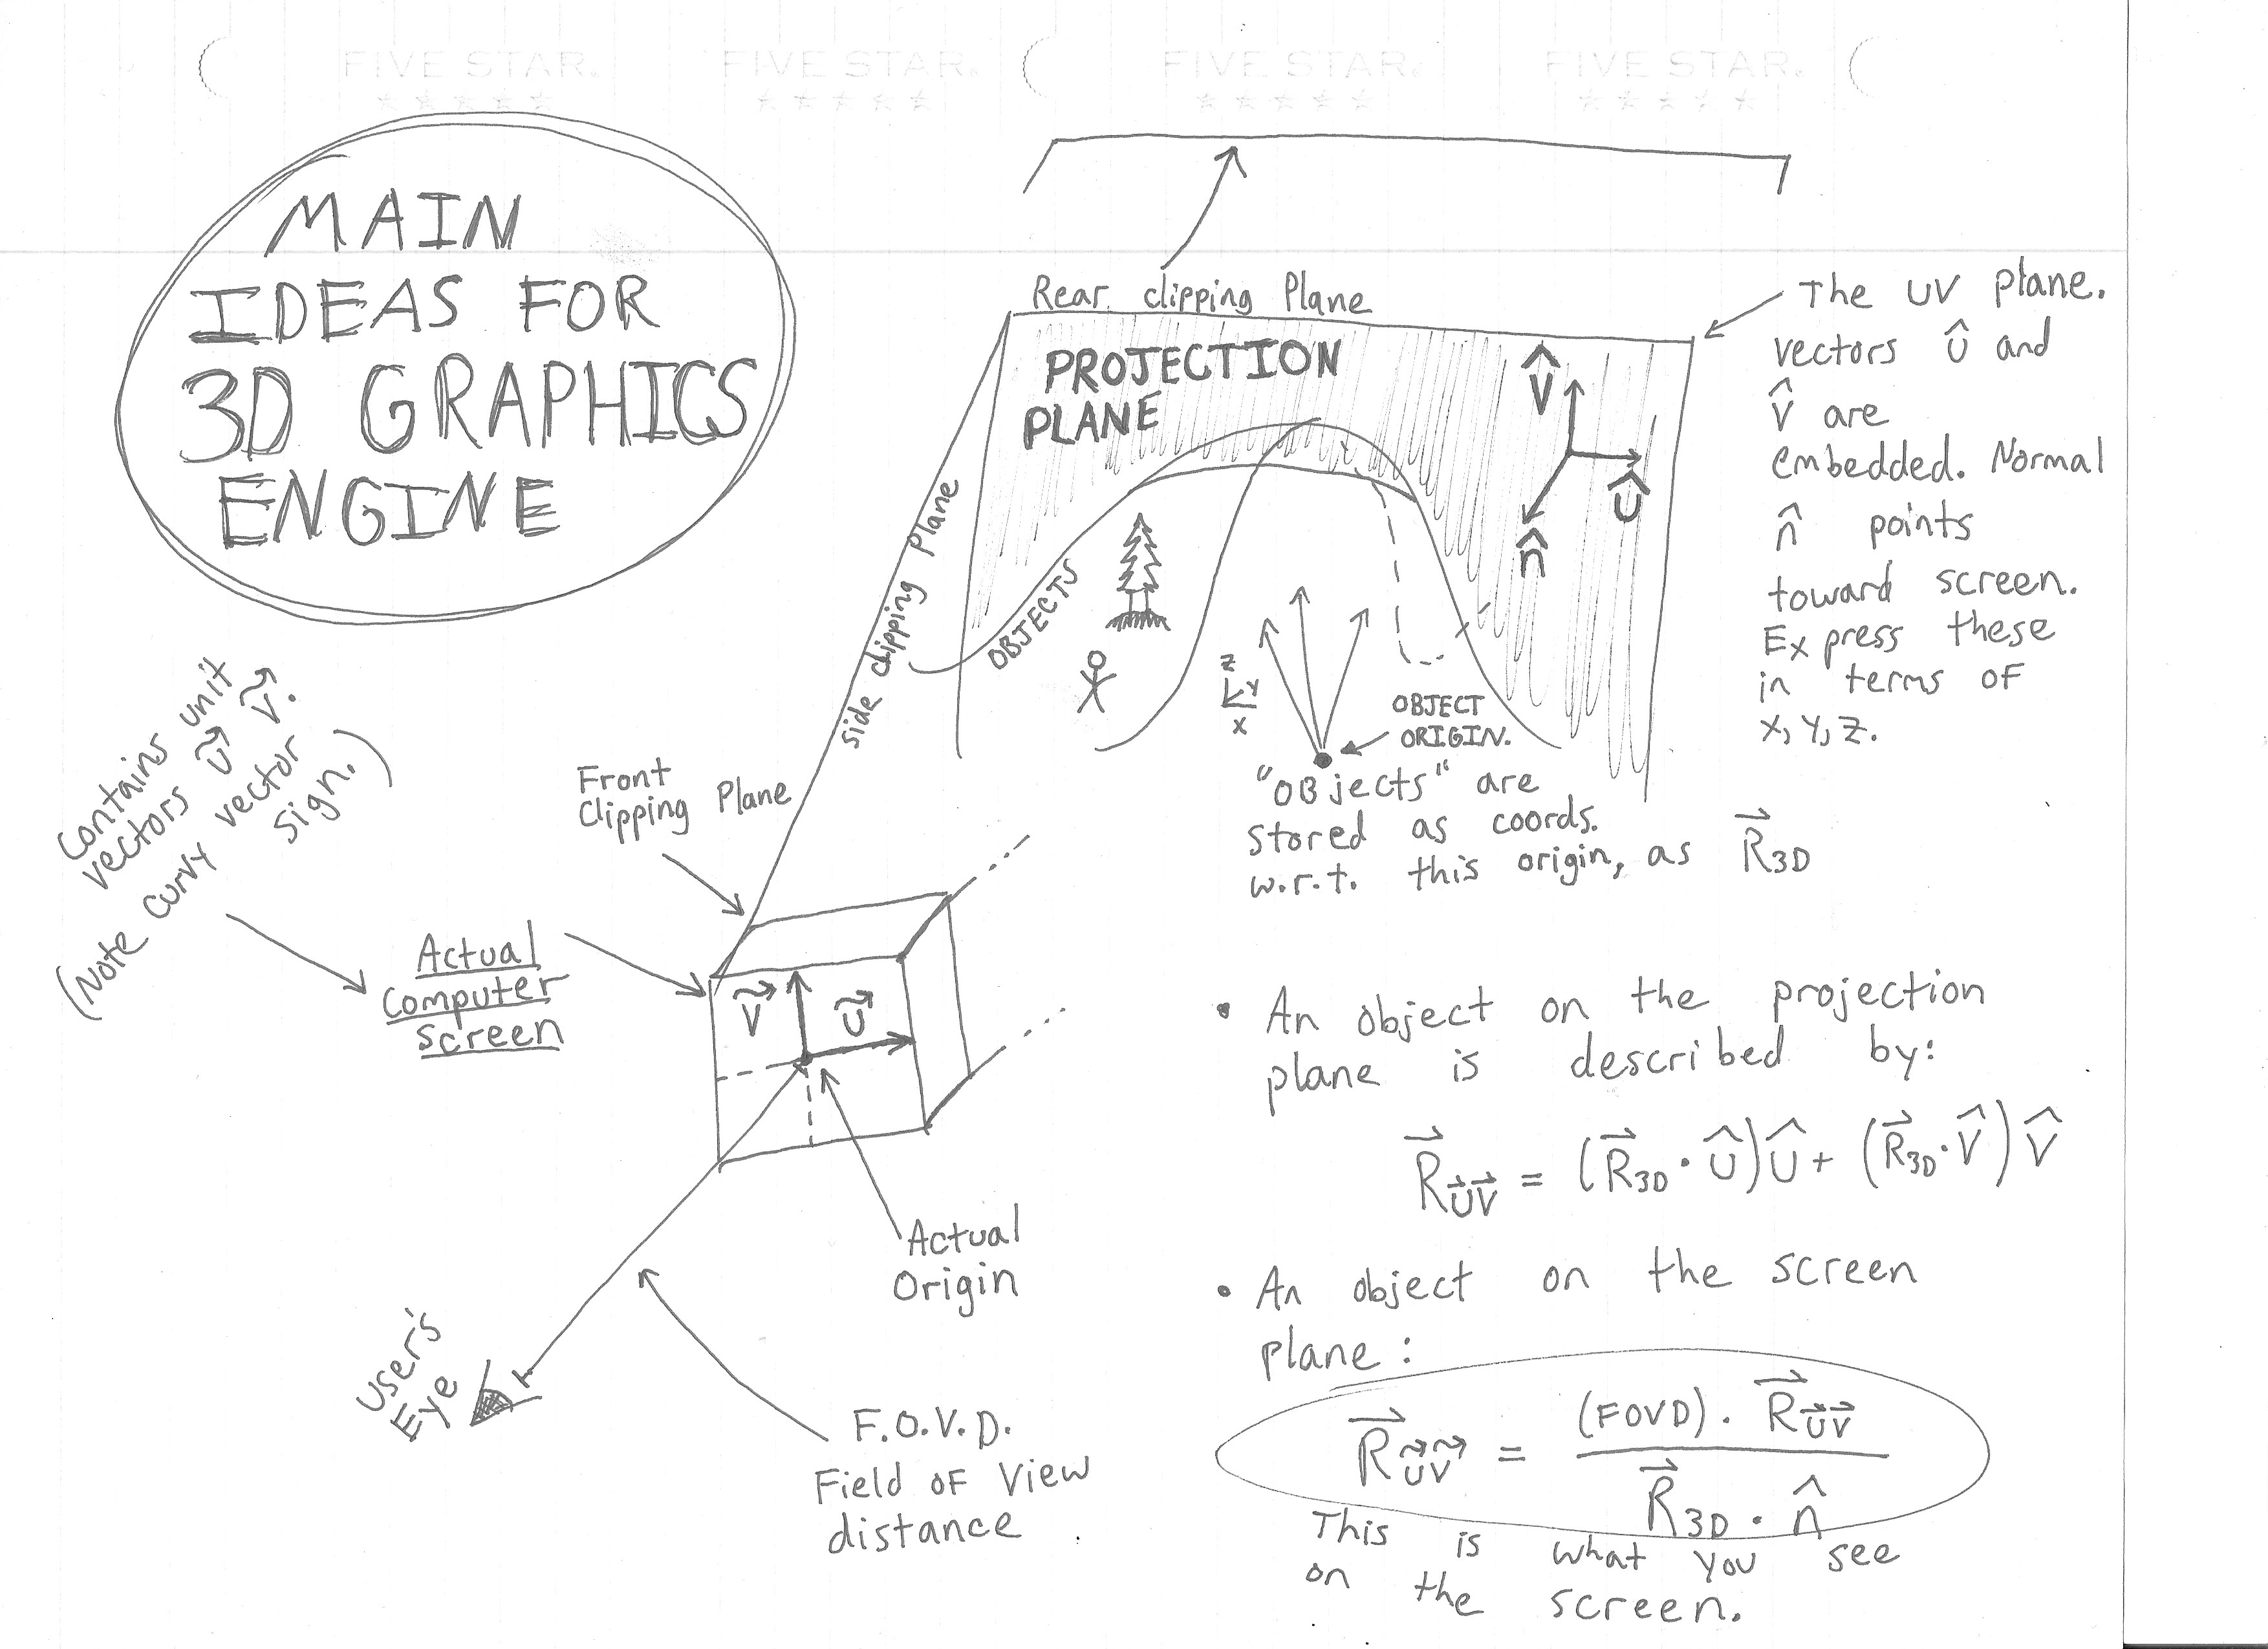 FIVE STAR. FIVE STAR. FIVE STAR. FIVE STAR.
MAIN
IDEAS FOR
3D GRAPHICS
ENGINE
Rear clipping Plane
PROJECTION
PLANE
V̂
Û
n̂
The UV plane.
vectors Û and
V̂ are
embedded. Normal
n̂ points
toward screen.
Express these
in terms of
X, Y, Z.
side clipping plane
OBJECTS
Z
Y
X
OBJECT
ORIGIN.
"OBjects" are
stored as coords.
w.r.t. this origin, as R⃗3D
Contains unit
vectors U⃗ V⃗.
(Note curvy vector
sign.)
Front
Clipping Plane
Actual
Computer
Screen
V⃗
U⃗
Actual
Origin
User's
Eye
F.O.V.D.
Field of View
distance
• An object on the projection
plane is described by:
R⃗U⃗V⃗ = (R⃗3D · Û)Û + (R⃗3D · V̂)V̂
• An object on the screen
plane:
R⃗U⃗V⃗ = (FOVD) · R⃗U⃗V⃗
R⃗3D · n̂
This is what you see
on the screen.